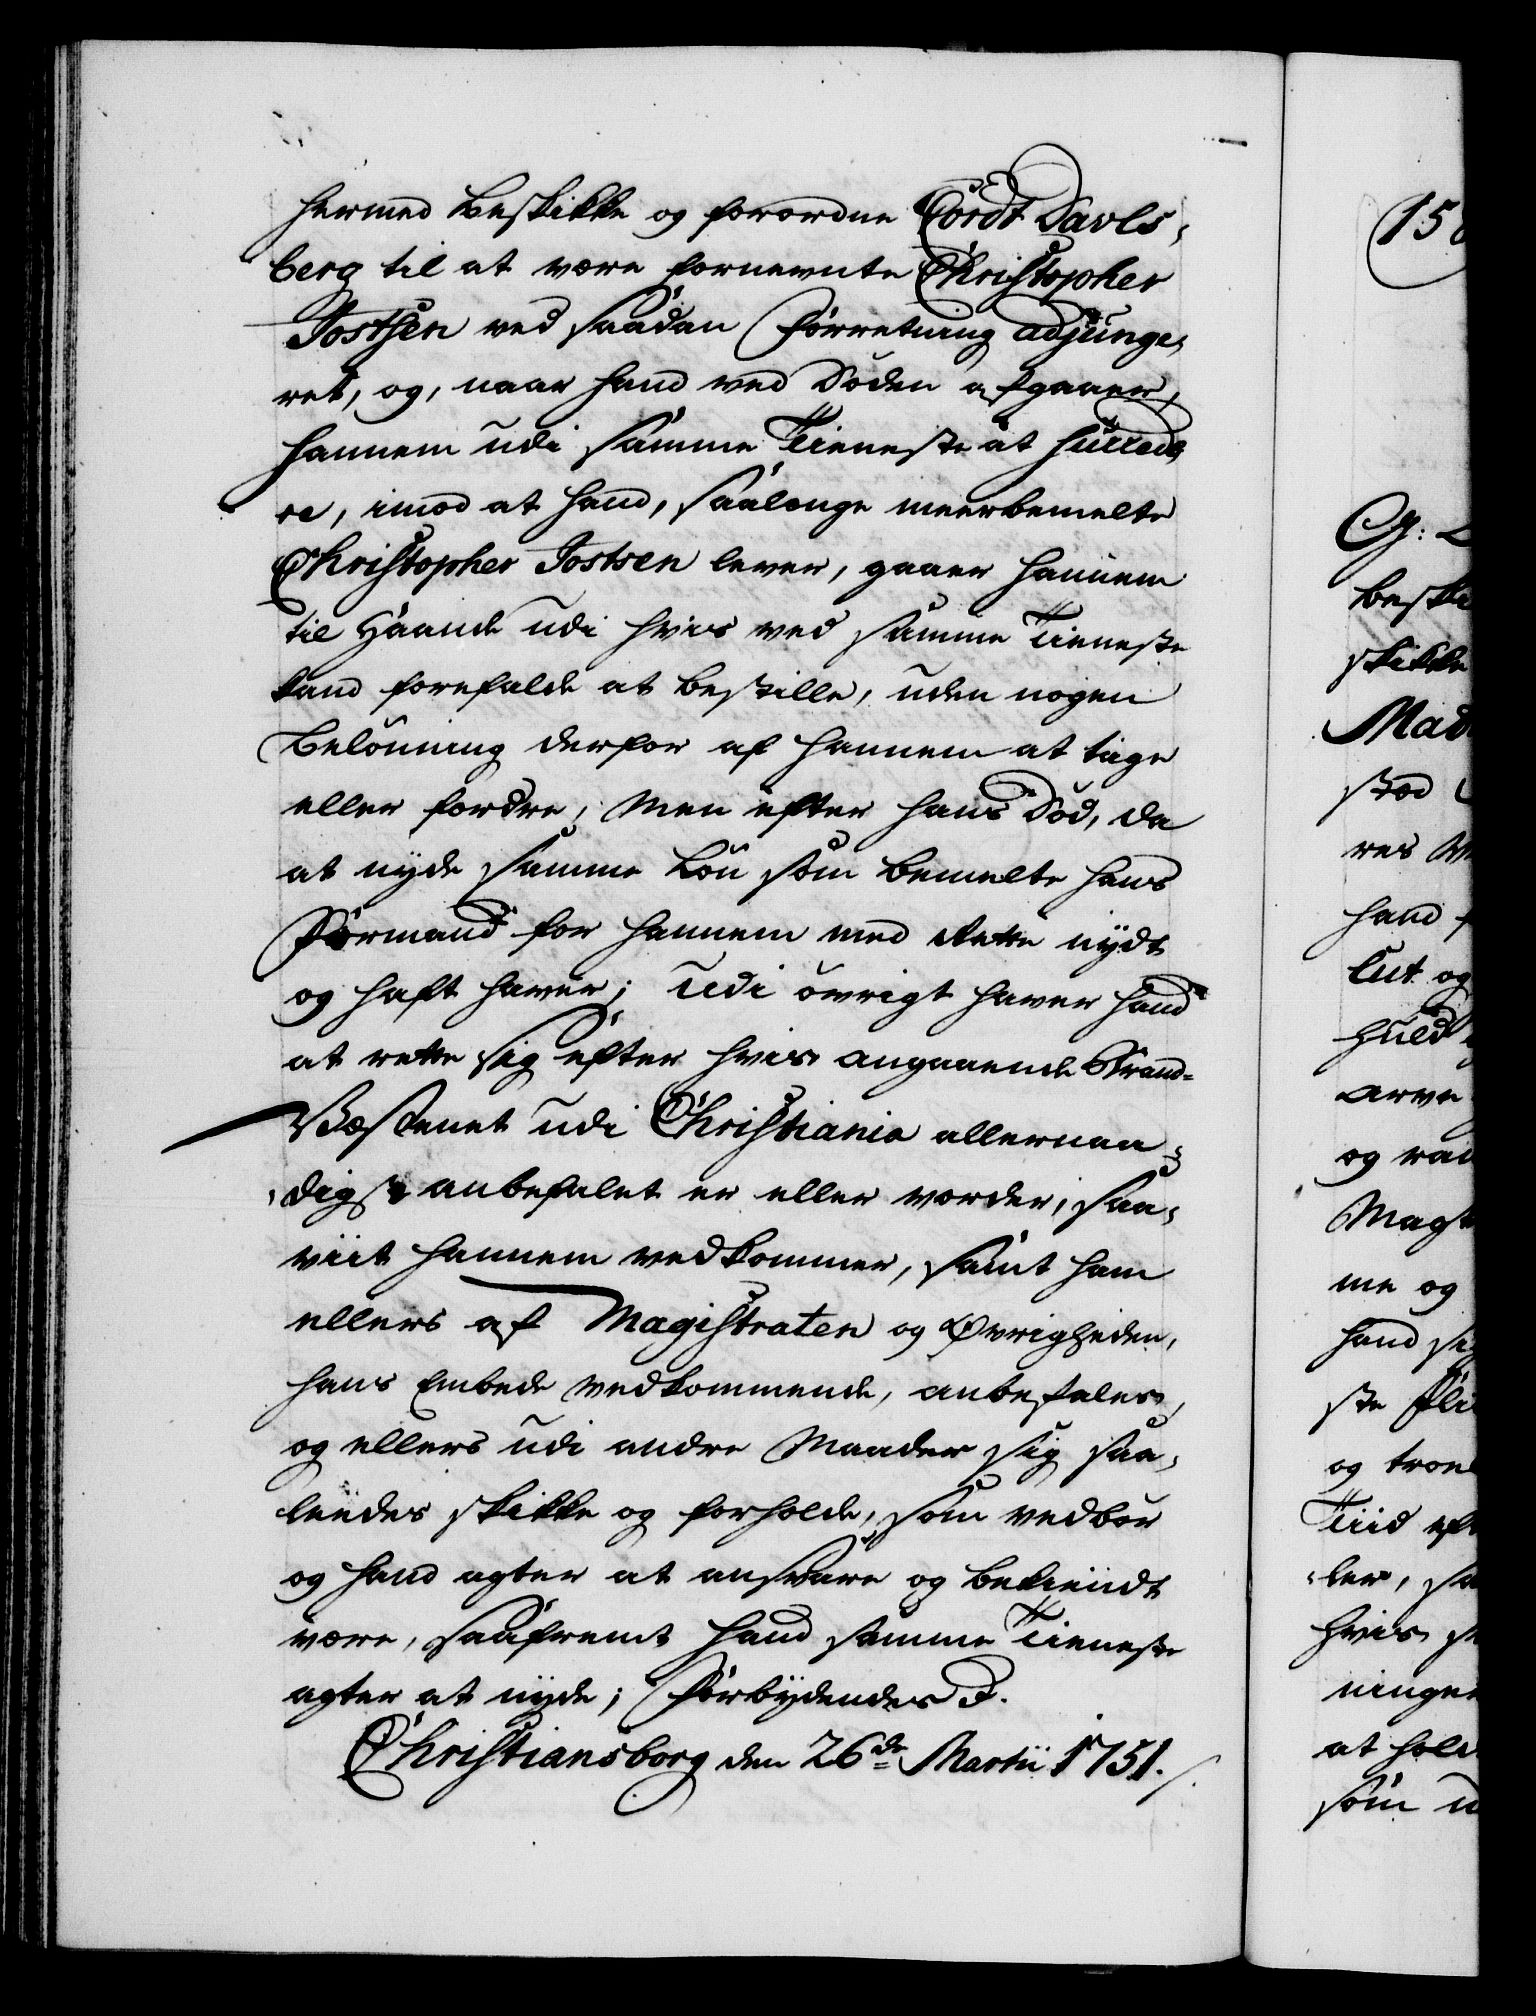 hermed beskikke og forordne Cordt Davels-
berg til at være fornevnte Christopher
Jostsen ved saadan Forretning adjunge-
ret, og, naar hand ved Döden afgaaer,
hannem udi samme Tieneste at succede-
re, imod at hand, saalenge meerbemelte
Christopher Jostsen lever, gaaer hannem
til Haande udi hvis ved samme Tieneste
kand forefalde at bestille, uden nogen
Belönning derfor af hannem at tage
eller fordre; Men efter hans Död, da
at nyde samme Lön som bemelte hans
Formand for hannem med Rette nydt
og haft haver; Udi övrigt haver hand
at rette sig efter hvis angaaende Brand-
Væsenet udi Christiania allernaa-
digst anbefalet er eller vorder, saa-
viit hannem vedkommer, samt ham
ellers af Magistraten og Øvrigheden,
hans Embede vedkommende, anbefales,
og ellers udi andre Maader sig saa-
ledes skikke og forholde, som vedbör
og hand agter at ansvare og bekiendt
være, saafremt hand samme Tieneste
agter at nyde; Forbydendes P.
Christiansborg den 26de Martii 1751.
15
G: L
beski
skikke
Mad
sted
res
hand
lut og
huld
arve
og
Magt
me og
hand sig
ste Fli
og troe
Tiid eft
ler, sa
hvis
ningen
at hold
som u